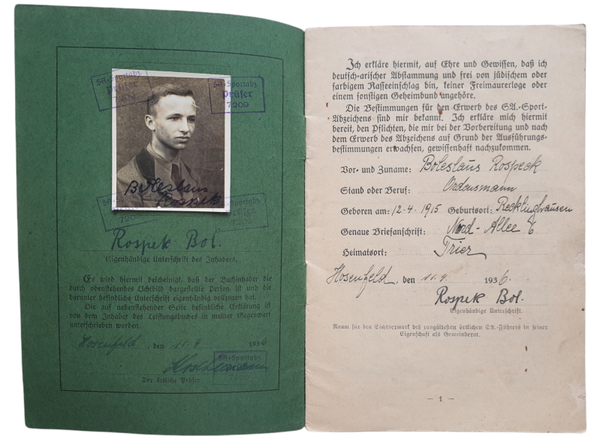 SA-Sportabz.
Prüfer
7209
SA-Sportabz.
Prüfer
7209
Boleslaus
Rospek
Rospek Bol.
Eigenhändige Unterschrift des Inhabers.
Es wird hiermit bescheinigt, daß der Buchinhaber die
durch obenstehendes Lichtbild dargestellte Person ist und die
darunter befindliche Unterschrift eigenhändig vollzogen hat.
Die auf nebenstehender Seite befindliche Erklärung ist
von dem Inhaber des Leistungsbuches in meiner Gegenwart
unterschrieben worden.
Hosenfeld, den 11.9. 1936
SA-Sportabz.
Der Prüfer
Ich erkläre hiermit, auf Ehre und Gewissen, daß ich
deutsch-arischer Abstammung und frei von jüdischem oder
farbigem Rasseeinschlag bin, keiner Freimaurerloge oder
einem sonstigen Geheimbund angehöre.
Die Bestimmungen für den Erwerb des SA.-Sport-
Abzeichens sind mir bekannt. Ich erkläre mich hiermit
bereit, den Pflichten, die mir bei der Vorbereitung und nach
dem Erwerb des Abzeichens auf Grund der Ausführungs-
bestimmungen erwachsen, gewissenhaft nachzukommen.
Vor- und Zuname: Boleslaus Rospeck
Stand oder Beruf: Ordensmann
Geboren am 12.4.1915 Geburtsort: Recklinghausen
Genaue Briefanschrift: Nord-Allee
Heimatsort: Trier
Hosenfeld, den 11.9. 1936.
Rospek Bol.
Eigenhändige Unterschrift.
Raum für den Sichtvermerk des rangältesten örtlichen SA-Führers in seiner
Eigenschaft als Gemeinderat.
— 1 —